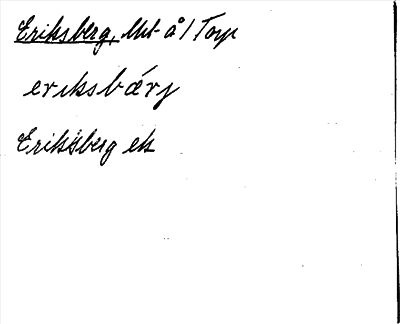 Eriksberg, Mt å / Torp
eriksbǽrj
Eriksberg ek